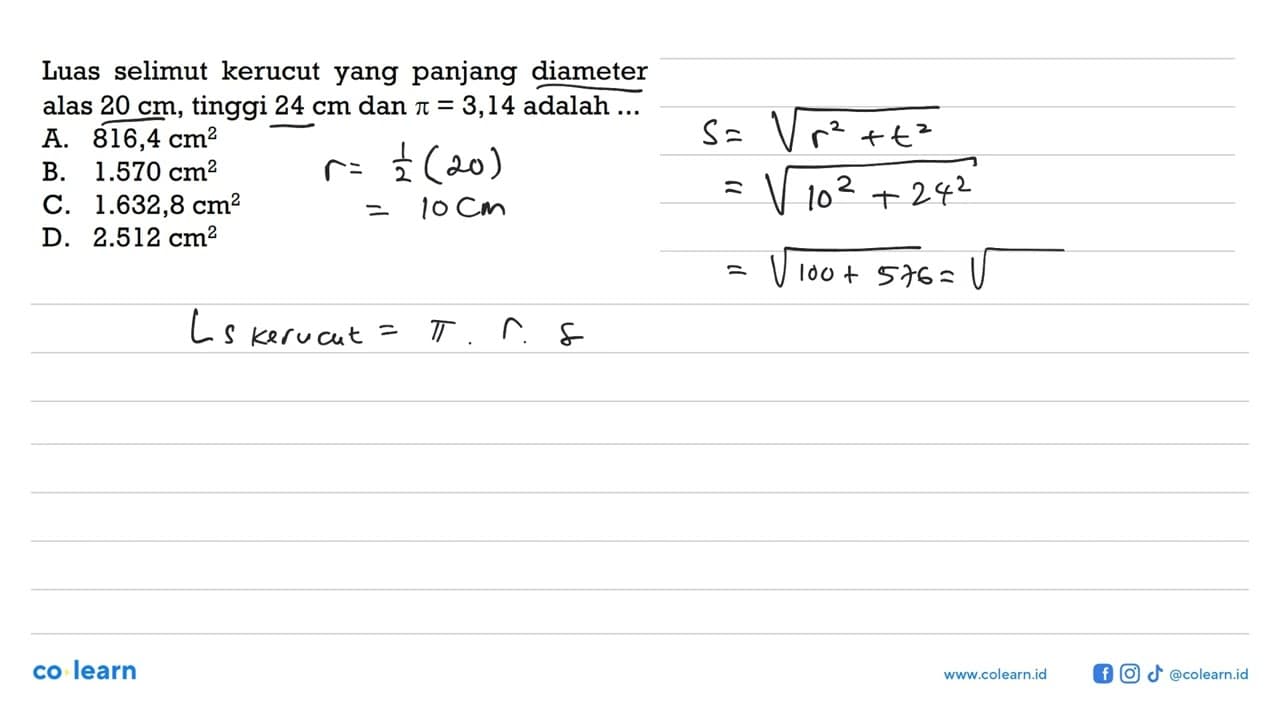 Luas selimut kerucut yang panjang diameter
alas 20 cm, tinggi 24 cm dan π = 3,14 adalah ...
A. 816,4 cm²
B. 1.570 cm²
C. 1.632,8 cm²
D. 2.512 cm²
r = 1/2 (20)
= 10 cm
S = √r² + t²
= √10² + 24²
= √100 + 576 = √
Ls kerucut = π . r . s
co learn
www.colearn.id
@colearn.id